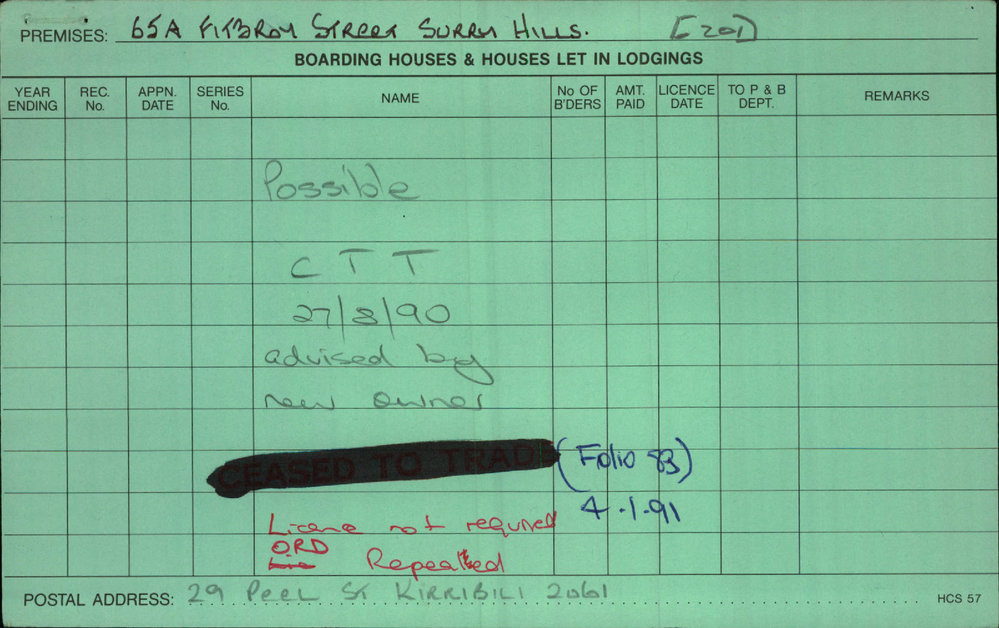 PREMISES: 65A FITZROY STREET SURRY HILLS. [201]
BOARDING HOUSES & HOUSES LET IN LODGINGS
YEAR ENDING REC. No. APPN. DATE SERIES No. NAME No OF B'DERS AMT. PAID LICENCE DATE TO P & B DEPT. REMARKS
Possible
C T T
27/8/90
advised by
new owner
CEASED TO TRADE (Folio 83)
4.1.91
Licence not required
ORD Repealed
POSTAL ADDRESS: 29 PEEL ST KIRRIBILI 2061 HCS 57